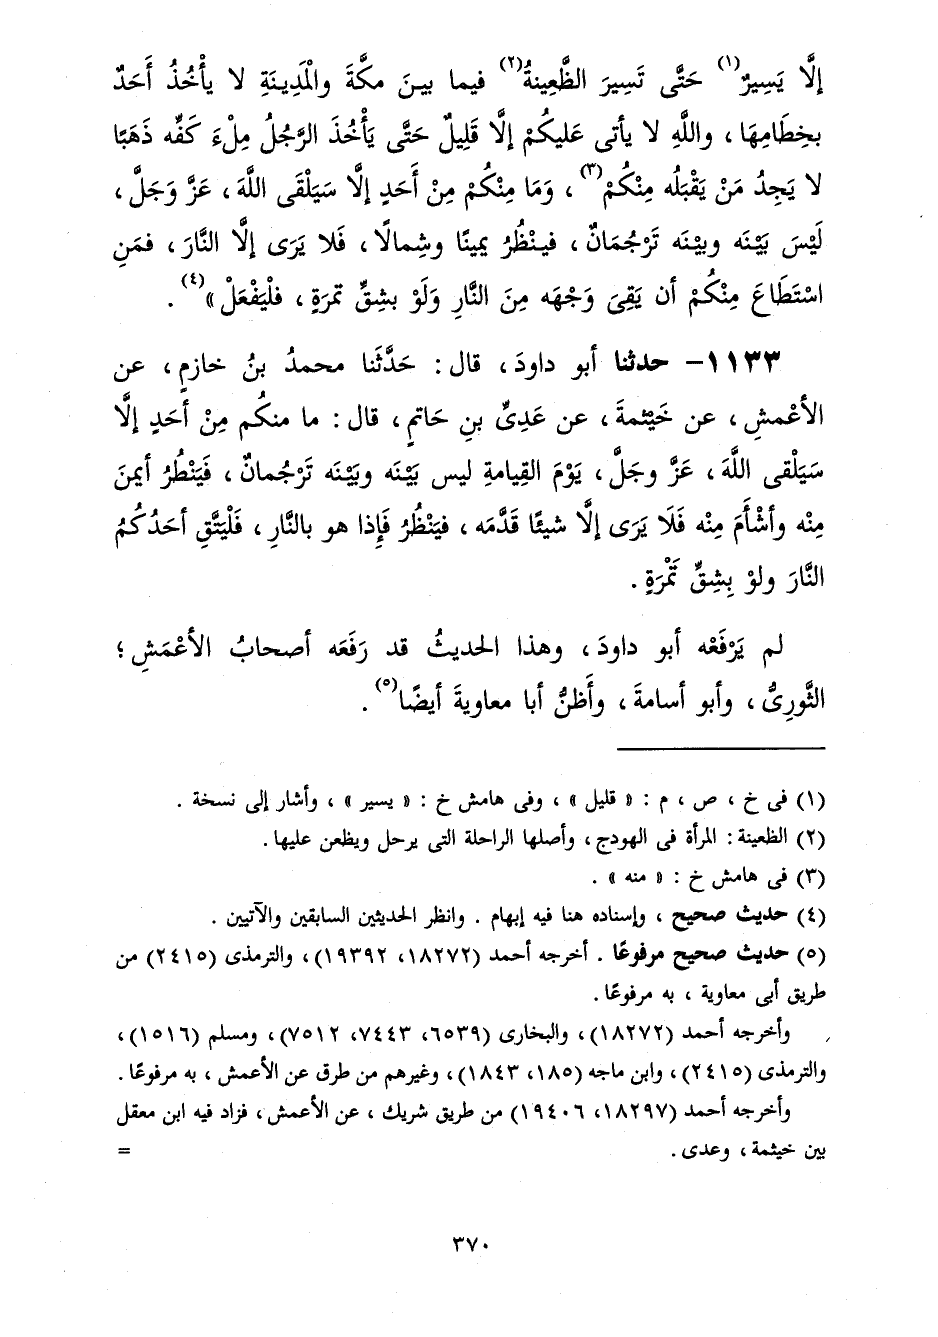 إلَّا يَسِيرٌ(١) حَتَّى تَسِيرَ الظَّعِينةُ(٢) فيما بينَ مكَّةَ والْمَدِينَةِ لا يأْخُذُ أَحَدٌ
بخِطَامِهَا ، واللَّهِ لا يأتى عَليكُمْ إلَّا قَلِيلٌ حَتَّى يَأْخُذَ الرَّجُلُ مِلْءَ كَفِّه ذَهَبًا
لا يَجِدُ مَنْ يَقْبَلُه مِنْكُمْ(٣) ، وَمَا مِنْكُمْ مِنْ أَحَدٍ إلَّا سَيَلْقَى اللَّهَ ، عَزَّ وَجَلَّ ،
لَيْسَ بَيْنَه وبيْنَه تَرْجُمَانٌ ، فَيـنْظُرُ يمينًا وشِمالًا ، فَلا يَرَى إلَّا النَّارَ ، فمَنِ
اسْتَطَاعَ مِنْكُمْ أن يَقِىَ وَجْهَه مِنَ النَّارِ وَلَوْ بشِقِّ تمرَةٍ ، فلْيَفْعَلْ »(٤) .
١١٣٣- حدثنا أبو داودَ ، قال : حَدَّثَنا محمدُ بنُ خازمٍ ، عن
الأعْمشِ ، عن خَيْثمةَ ، عن عَدِىِّ بنِ حَاتمٍ ، قال : ما منكُم مِنْ أحَدٍ إلَّا
سَيَلْقى اللَّهَ ، عَزَّ وجَلَّ ، يَوْمَ القِيامةِ ليس بَيْنَه وبَيْنَه تَرْجُمانٌ ، فَيَنْظُرُ أيمنَ
مِنْه وأشْأَمَ مِنْه فَلَا يَرَى إلَّا شيئًا قَدَّمَه ، فيَنْظُرُ فَإِذا هو بالنَّارِ ، فَلْيَتَّقِ أحَدُكُمُ
النَّارَ ولوْ بِشِقِّ تَمْرَةٍ .
لم يَرْفَعْه أبو داودَ ، وهذا الحديثُ قد رَفَعَه أصحابُ الأعْمَشِ ؛
الثَّورِىُّ ، وأبو أسامةَ ، وأَظنُّ أبا معاويةَ أيضًا(٥) .
(١) فى خ ، ص ، م : « قليل » ، وفى هامش خ : « يسير » ، وأشار إلى نسخة .
(٢) الظعينة : المرأة فى الهودج ، وأصلها الراحلة التى يرحل ويظعن عليها .
(٣) فى هامش خ : « منه » .
(٤) حديث صحيح ، وإسناده هنا فيه إبهام . وانظر الحديثين السابقين والآتيين .
(٥) حديث صحيح مرفوعًا . أخرجه أحمد (١٨٢٧٢، ١٩٣٩٢) ، والترمذى (٢٤١٥) من
طريق أبى معاوية ، به مرفوعًا .
وأخرجه أحمد (١٨٢٧٢) ، والبخارى (٦٥٣٩، ٧٤٤٣، ٧٥١٢) ، ومسلم (١٥١٦) ،
والترمذى (٢٤١٥) ، وابن ماجه (١٨٥، ١٨٤٣) ، وغيرهم من طرق عن الأعمش ، به مرفوعًا .
وأخرجه أحمد (١٨٢٩٧، ١٩٤٠٦) من طريق شريك ، عن الأعمش ، فزاد فيه ابن معقل
بين خيثمة ، وعدى . =
٣٧٠